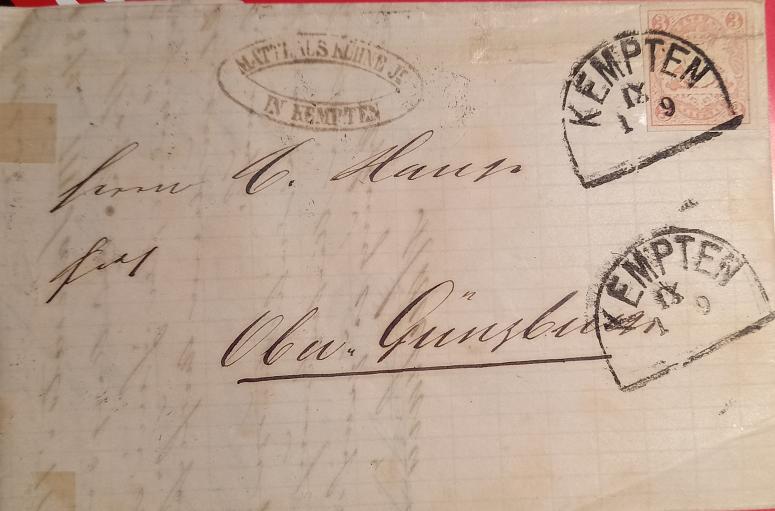 3 3
MATTHAUS KÜHNE Jr
IN KEMPTEN
KEMPTEN
IX
1 9
Herrn C. Haup
Ober-Günzburg
KEMPTEN
IX
1 9